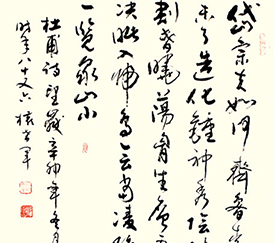 岱宗夫如何齊魯青
未了造化鍾神秀陰
割昏曉蕩胸生層
决眥入歸鳥會當凌
一覽衆山小
杜甫詩望嶽辛卯年冬月
時年八十又六